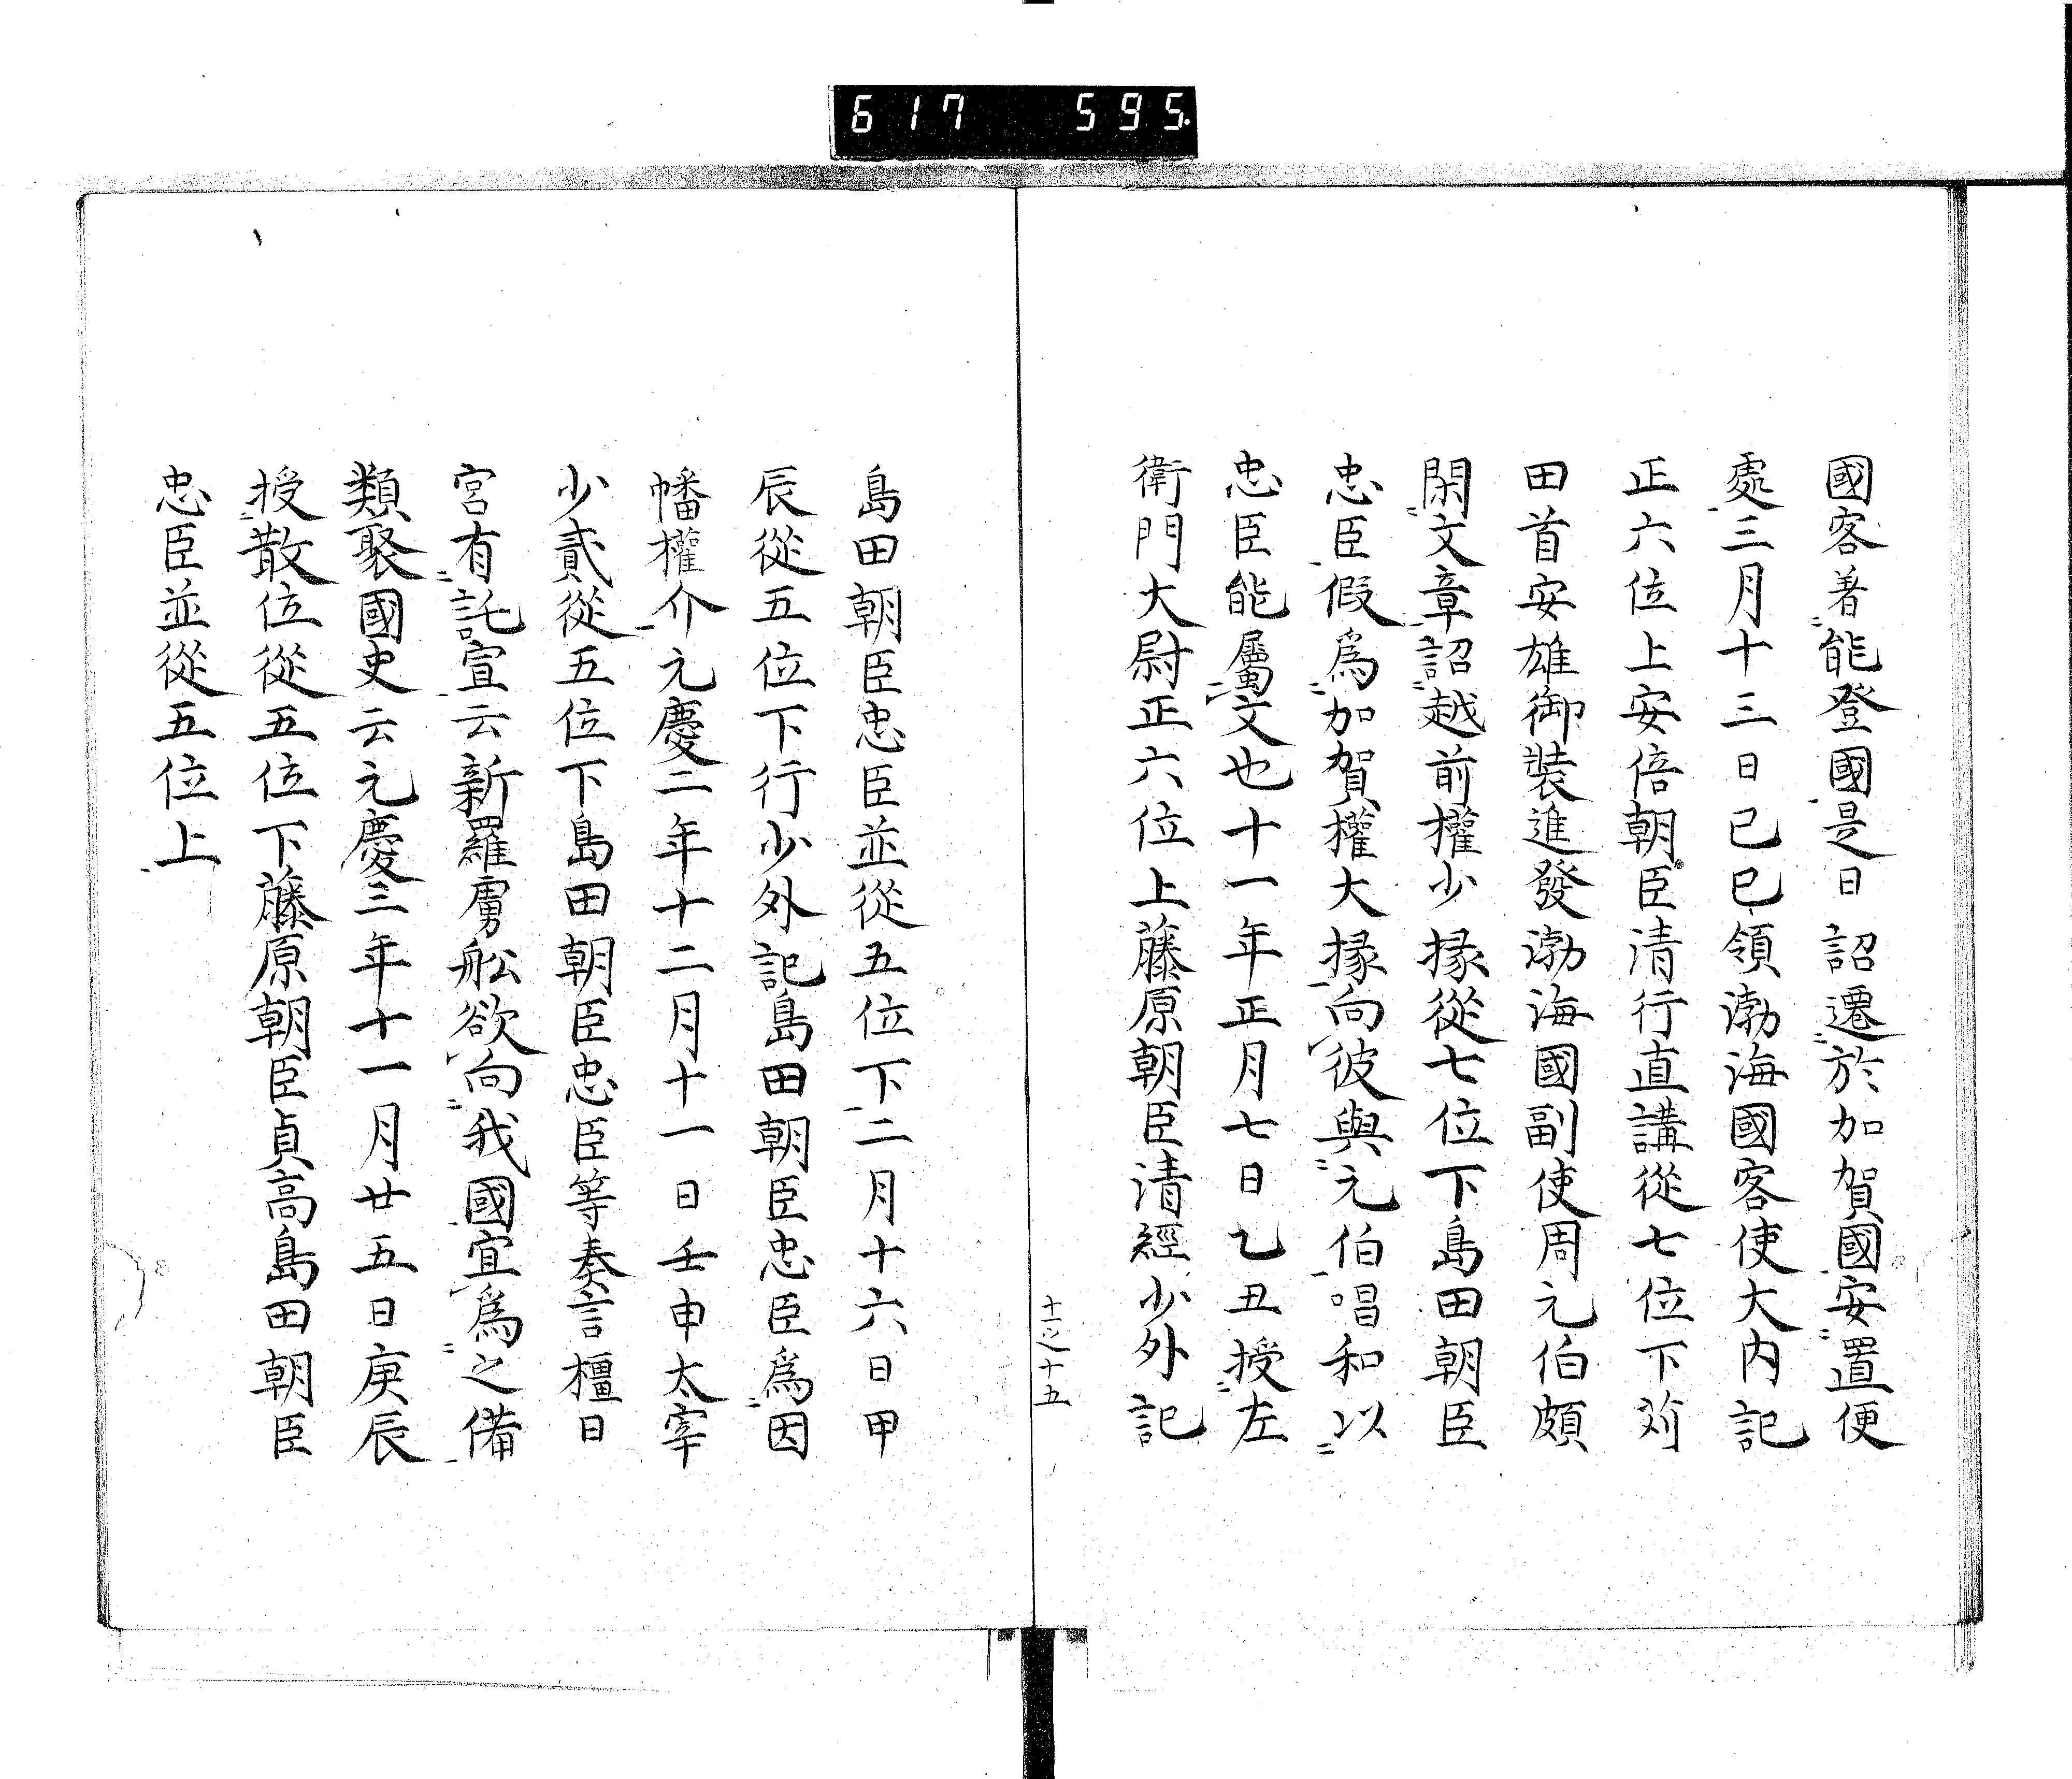 617 595
國客著能登國是日詔遷於加賀國安置便
處三月十三日己巳領渤海國客使大內記
正六位上安倍朝臣清行直講從七位下苅
田首安雄御裝進發渤海國副使周元伯頗
閑文章詔越前權少掾從七位下島田朝臣
忠臣假爲加賀權大掾向彼與元伯唱和以
忠臣能屬文也十一年正月七日乙丑授左
衛門大尉正六位上藤原朝臣清經少外記
十一之十五
島田朝臣忠臣並從五位下二月十六日甲
辰從五位下行少外記島田朝臣忠臣爲因
幡權介元慶二年十二月十一日壬申太宰
少貳從五位下島田朝臣忠臣等奏言橿日
宮有託宣云新羅虜舩欲向我國宜爲之備
類聚國史云元慶三年十一月廿五日庚辰
授散位從五位下藤原朝臣貞高島田朝臣
忠臣並從五位上